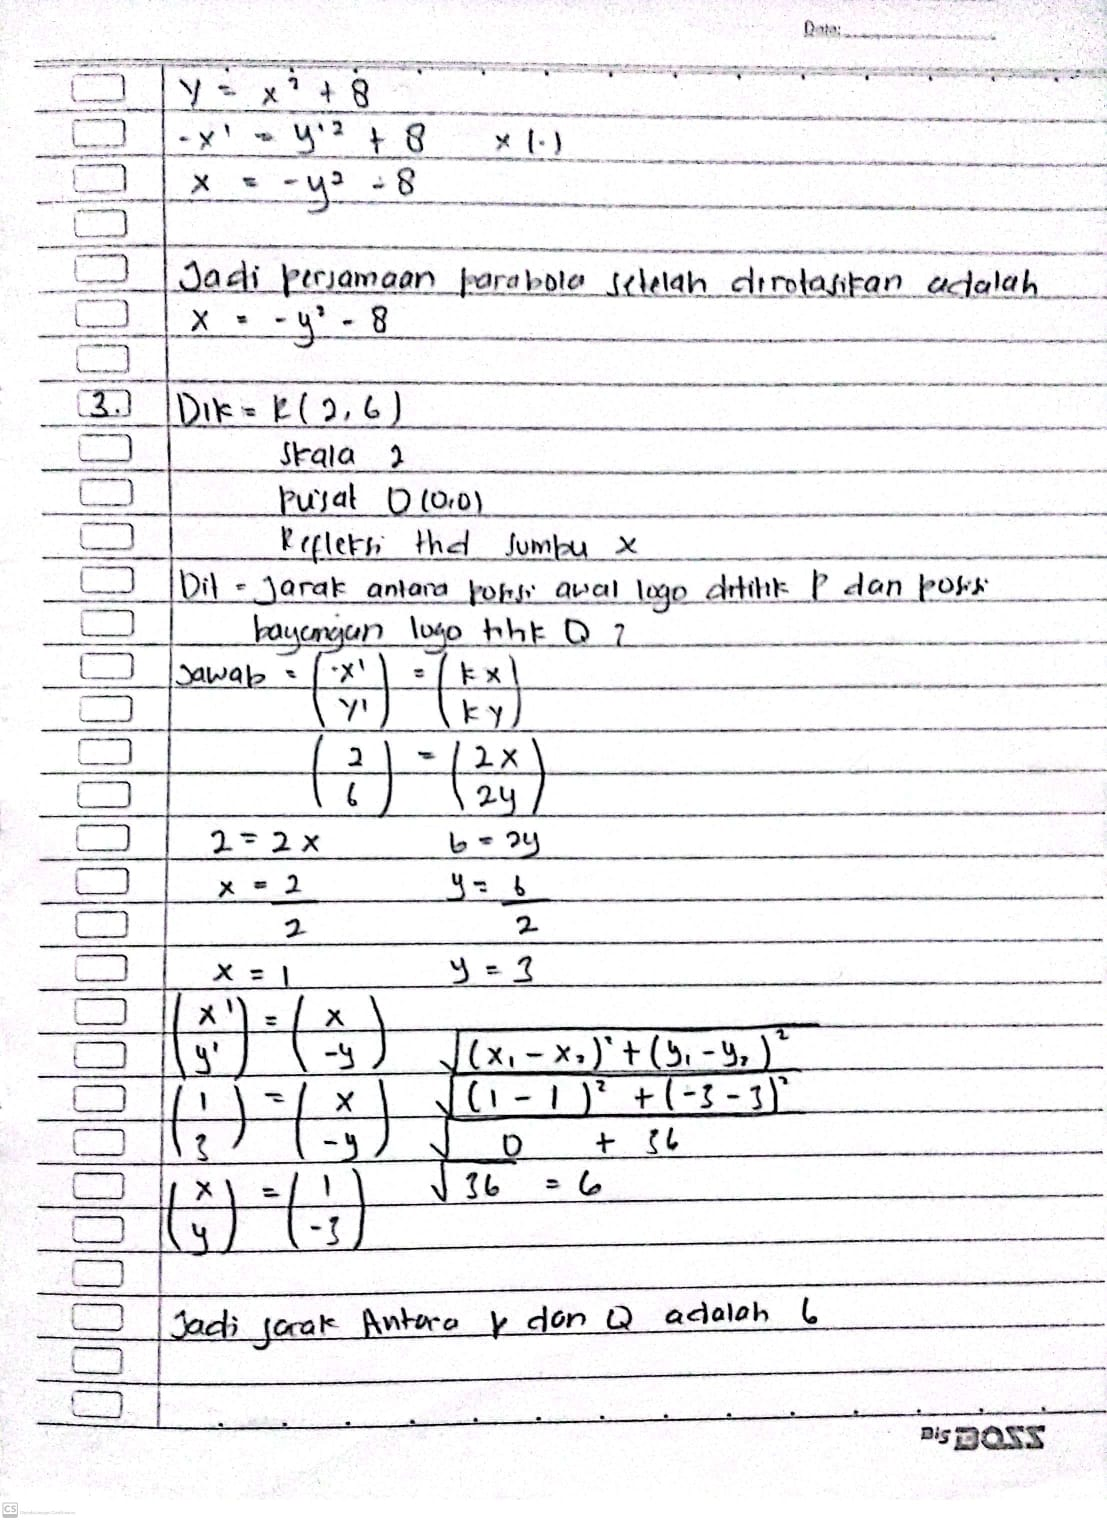 Date:
y = x² + 8
-x' = y'² + 8 x (-)
x = -y² - 8
Jadi persamaan parabola setelah dirotasikan adalah
x = -y² - 8
3. Dik = K(2,6)
Skala 2
Pusat O(0,0)
Refleksi thd sumbu x
Dit = Jarak antara posisi awal logo dititik P dan posisi
bayangan logo titik Q ?
Jawab = (x' y') = (kx ky)
(2 6) = (2x 2y)
2 = 2x 6 = 2y
x = 2/2 y = 6/2
x = 1 y = 3
(x' y') = (x -y) √(x₁ - x₂)² + (y₁ - y₂)²
(1 3) = (x -y) √(1 - 1)² + (-3 - 3)²
√0 + 36
(x y) = (1 -3) √36 = 6
Jadi jarak Antara P dan Q adalah 6
Big BOSS
CS